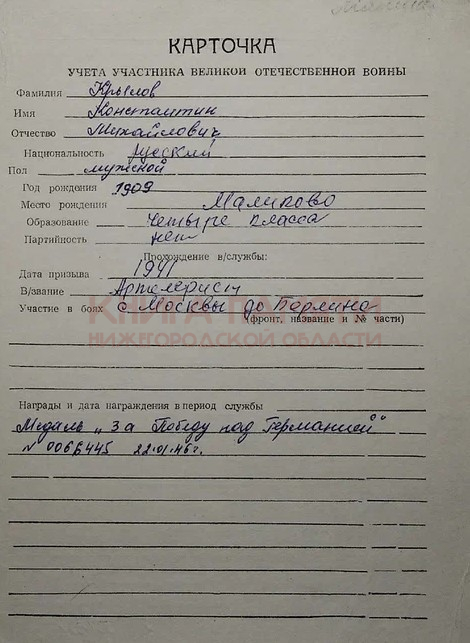 КАРТОЧКА
УЧЕТА УЧАСТНИКА ВЕЛИКОЙ ОТЕЧЕСТВЕННОЙ ВОЙНЫ
Фамилия Крылов
Имя Константин
Отчество Михайлович
Национальность русский
Пол мужской
Год рождения 1909
Место рождения Малиново
Образование Четыре класса
Партийность нет
Прохождение в/службы:
Дата призыва 1941
В/звание Артелерист
Участие в боях с Москвы до Берлина
(фронт, название и № части)
КНИГА ПАМЯТИ
НИЖЕГОРОДСКОЙ ОБЛАСТИ
Награды и дата награждения в период службы
Медаль „За Победу над Германией"
N 0066445 22.01.46г.